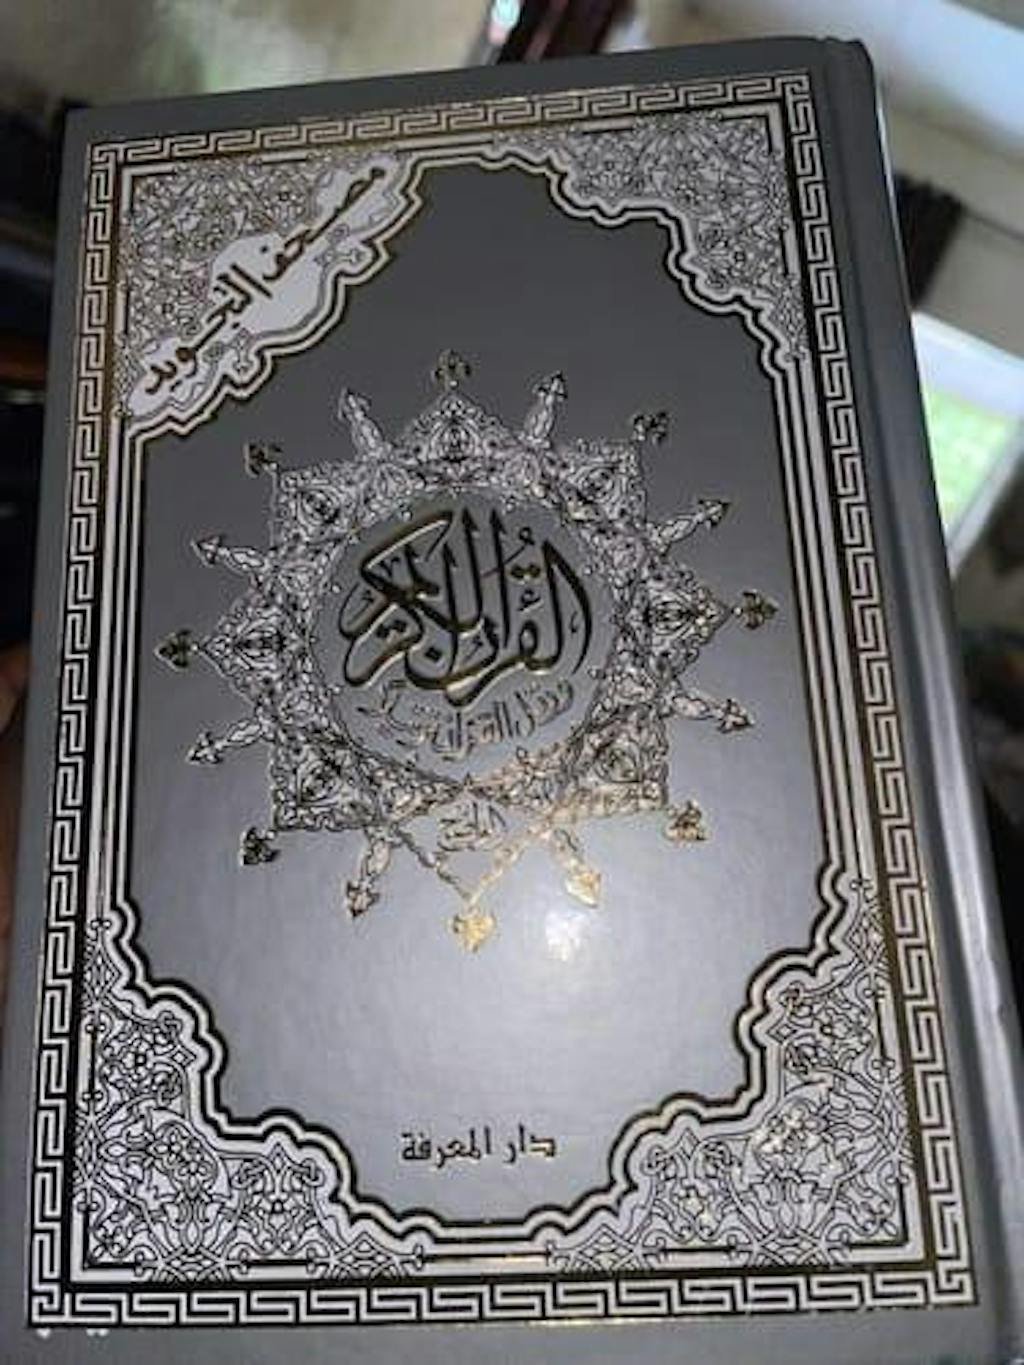 مصحف التجويد
القرآن الكريم
ورتل القرآن ترتيلا
دار المعرفة